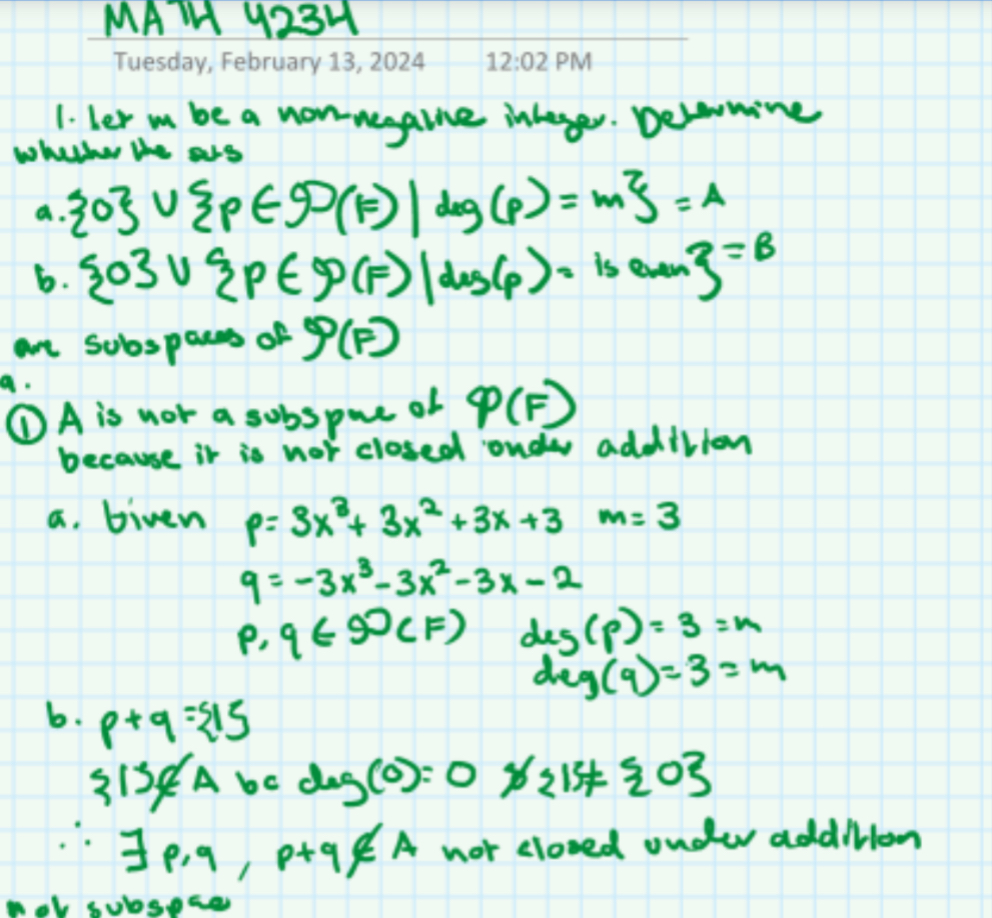 MATH 423H
Tuesday, February 13, 2024 12:02 PM
1. let m be a non-negative integer. Determine
whether the sets
a. {0} ∪ {p ∈ P(F) | deg(p) = m} = A
b. {0} ∪ {p ∈ P(F) | deg(p) = is even} = B
are subspaces of P(F)
a.
① A is not a subspace of P(F)
because it is not closed under addition
a. Given p = 3x³ + 3x² + 3x + 3 m = 3
q = -3x³ - 3x² - 3x - 2
p, q ∈ P(F) deg(p) = 3 = m
deg(q) = 3 = m
b. p + q = {1}
{1} ∉ A bc deg(0) = 0 {1} ≠ {0}
∴ ∃ p, q, p + q ∉ A not closed under addition
not subspace